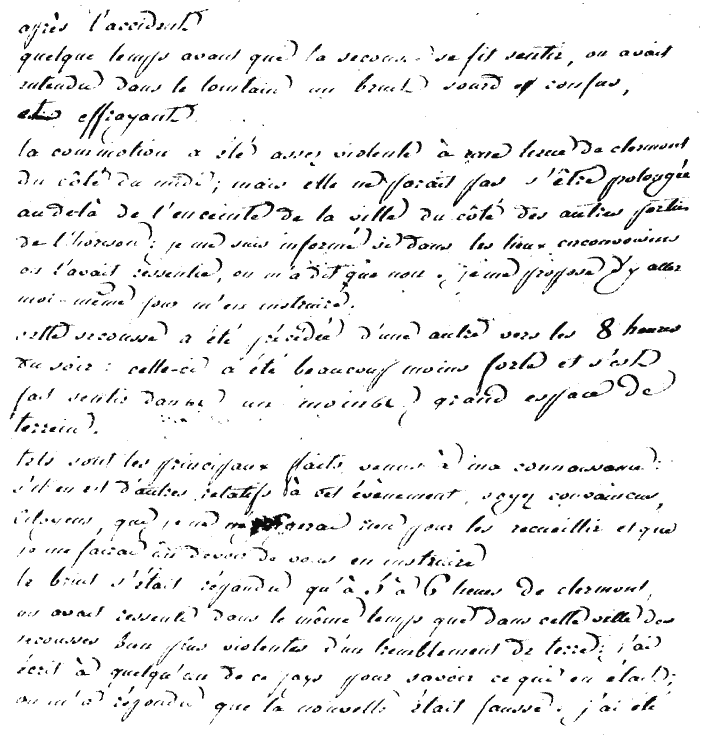 après l'accident
quelque temps avant que la secousse se fit sentir, on avait
entendu dans le lointain un bruit sourd et confus,
et effrayant.
la commotion a été assez violente à une lieue de clermont
du côté du midi; mais elle ne parait pas s'être prolongée
audelà de l'enceinte de la ville du côté des autres parties
de l'horison: je me suis informé si dans les lieux circonvoisins
on l'avait ressentie, on m'a dit que non. je me propose d'y aller
moi-même pour m'en instruire.
cette secousse a été précédée d'une autre vers les 8 heures
du soir: celle-ci a été beaucoup moins forte et s'est
fait sentir dans un moins grand espace de
terrein.
tels sont les principaux faits venus à ma connaissance:
s'il en est d'autres relatifs à cet évènement, soyez convaincus,
Citoyens, que je ne rien pour les recueillir et que
je me ferai un devoir de vous en instruire
le bruit s'était répandu qu'à 5 à 6 lieues de clermont,
on avait ressenti dans le même temps que dans cette ville des
secousses bien plus violentes d'un tremblement de terre; j'ai
écrit à quelqu'un de ce pays pour savoir ce qui en était;
on m'a répondu que la nouvelle était fausse. j'ai été